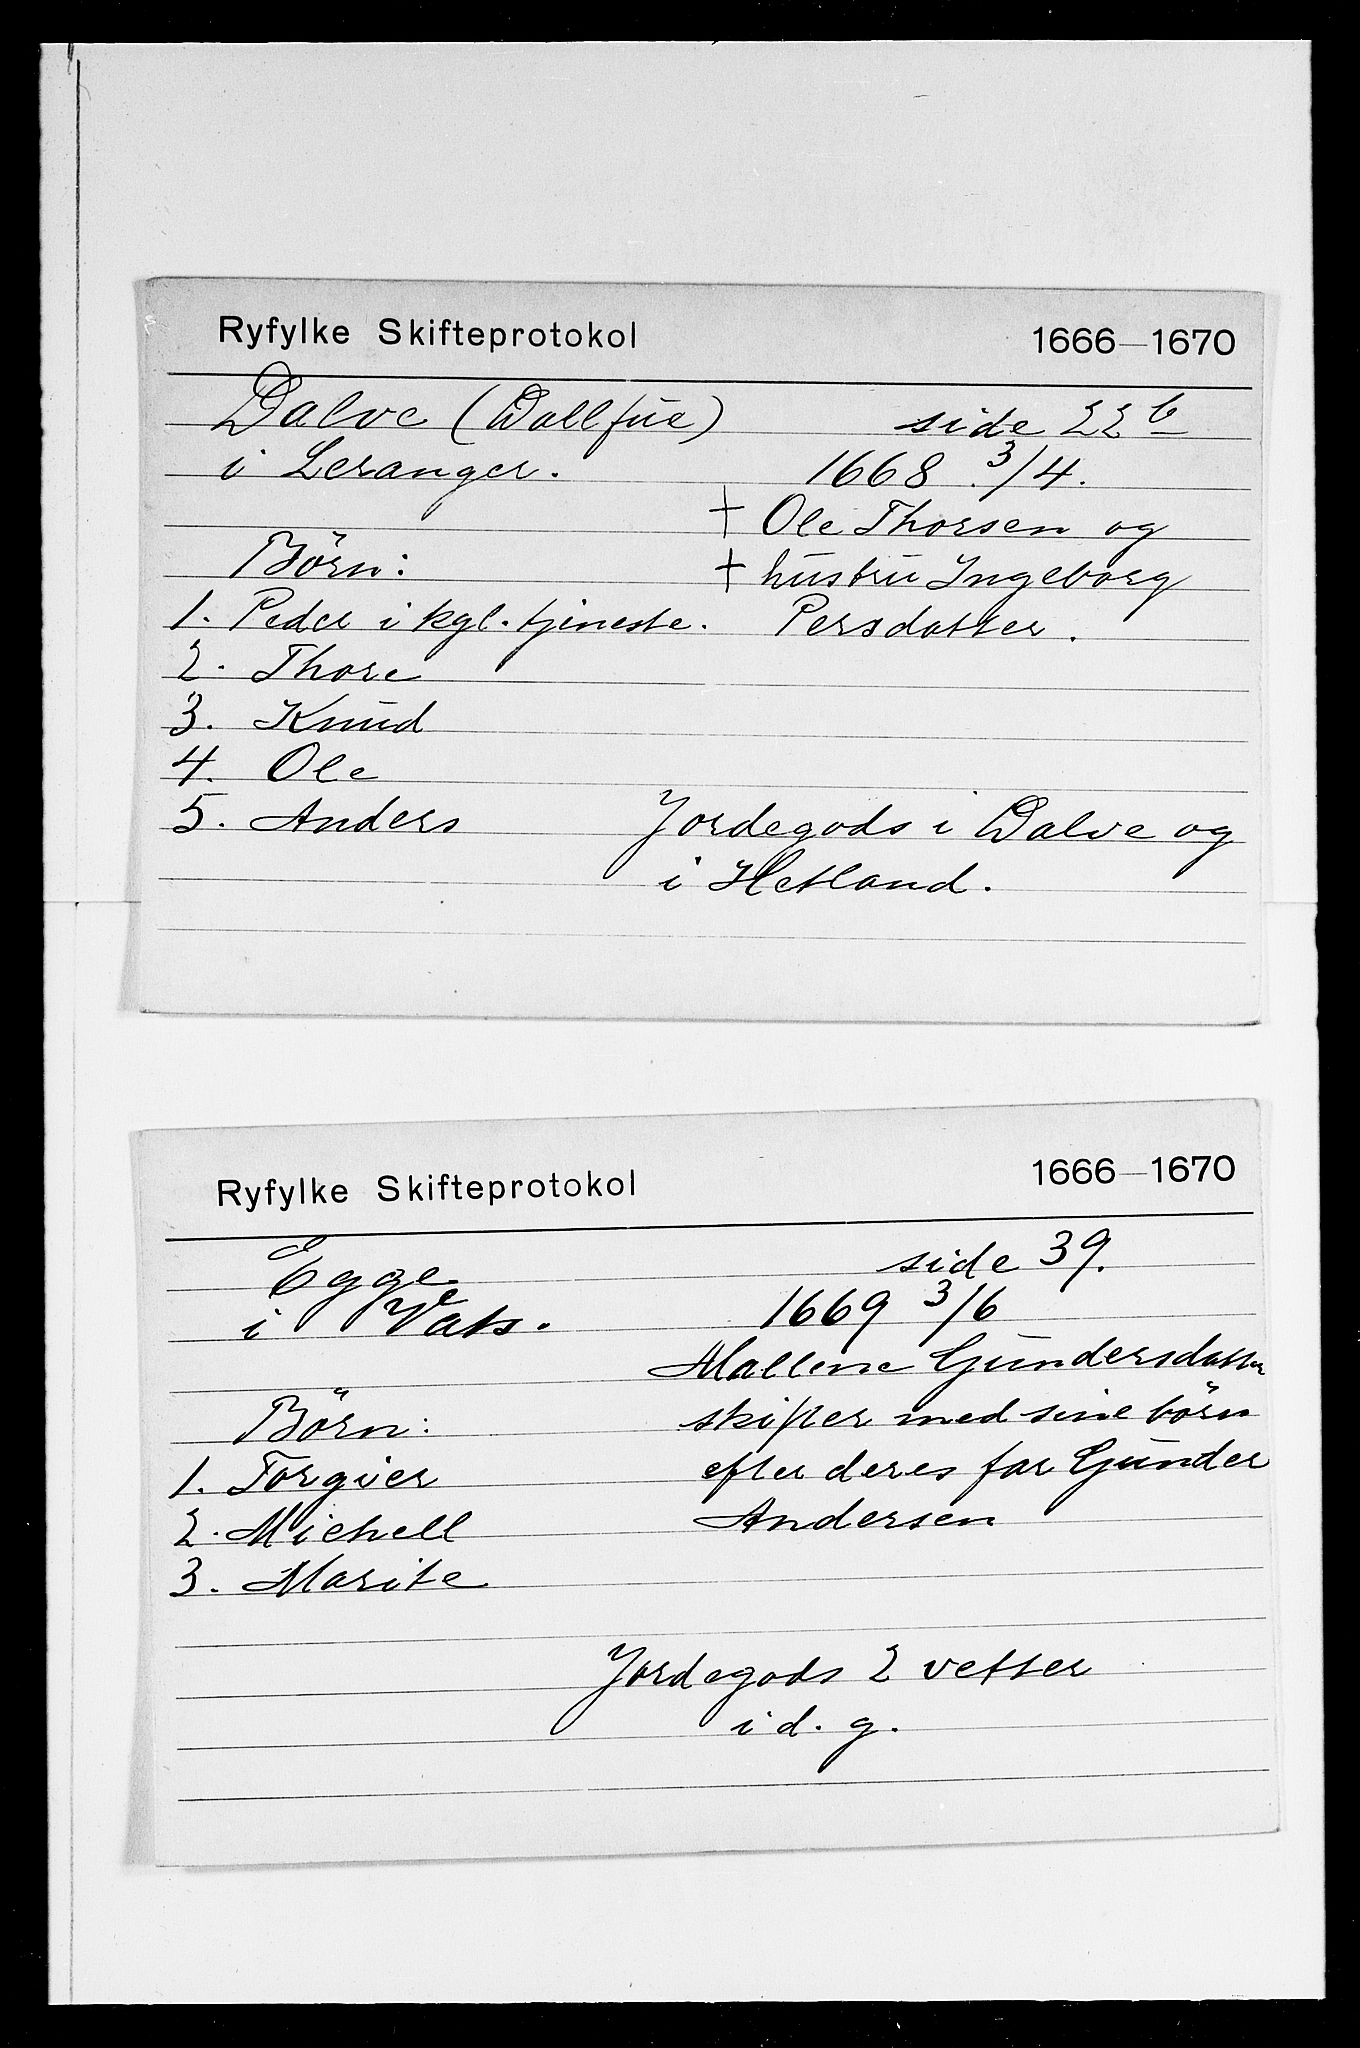 Ryfylke Skifteprotokol 1666—1670
Dalve (Dallfue) side 22 b
i Leranger. 1668 3/4.
† Ole Thorsen og
Börn: † hustru Ingeborg
1. Peder i kgl. tjeneste. Persdatter.
2. Thore
3. Knud
4. Ole
5. Anders Jordegods i Dalve og
i Hetland.
Ryfylke Skifteprotokol 1666—1670
Egge side 39.
i Vats. 1669 3/6
Mallene Gundersdatter
Börn: skifter med sine börn
1. Torgier efter deres far Gunder
2. Michell Andersen
3. Marite
Jordegods 2 vetter
i d. g.